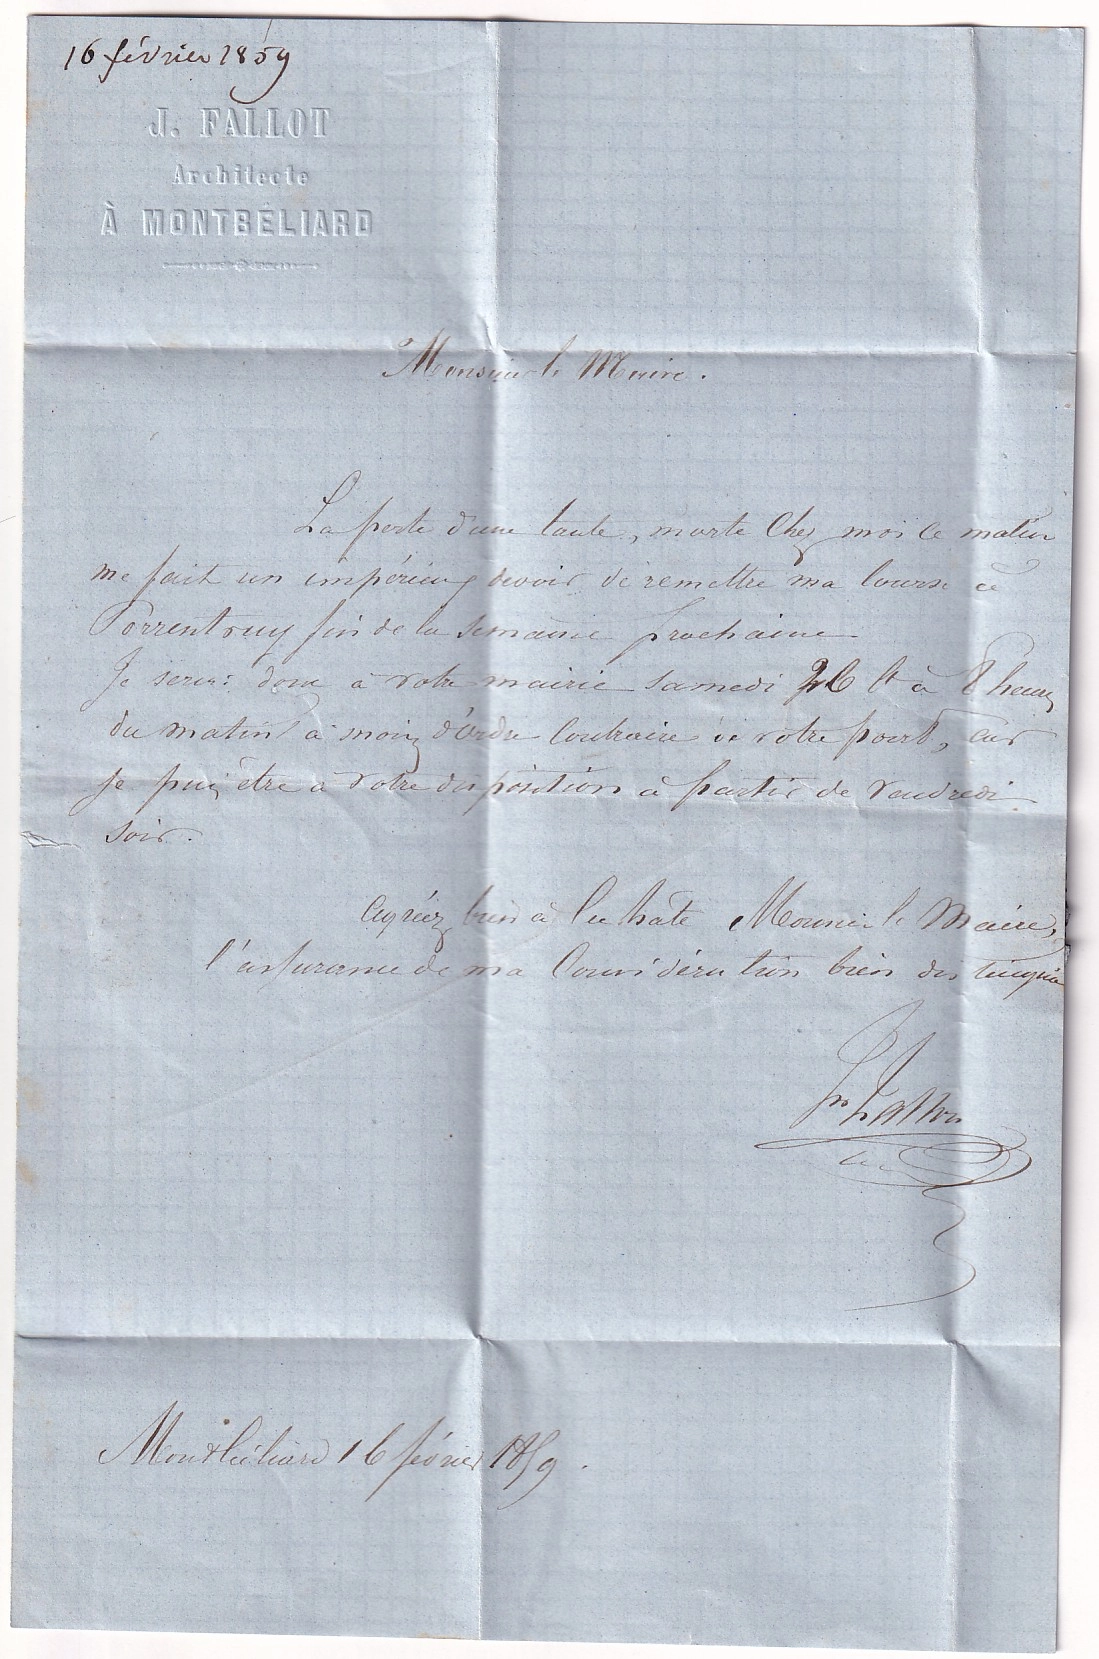 16 février 1859
J. FALLOT
Architecte
À MONTBÉLIARD
Monsieur le Maire.
La perte d'une tante, morte chez moi ce matin
me fait un impérieux devoir de remettre ma course à
Porrentruy fin de la semaine prochaine
Je serai donc à votre mairie samedi 26 Ct à 8 heures
du matin à moins d'ordre contraire de votre part, car
je puis être à votre disposition à partir de vendredi
soir.
Agréez bien à la hâte Monsieur le Maire,
l'assurance de ma considération bien distinguée
Fallot
Montbéliard 16 février 1859.